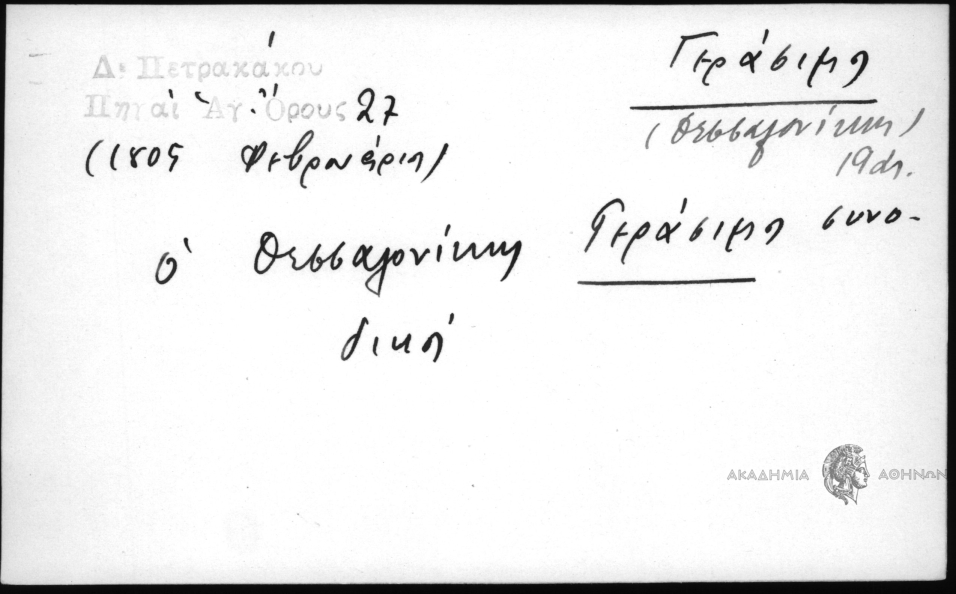 Δ. Πετρακάκου
Πηγαὶ Ἁγ. Ὄρους 27
(1805 Φεβρουάριος)
Γεράσιμος
(Θεσσαλονίκης)
19ος αι.
ὁ Θεσσαλονίκης Γεράσιμος συνο-
δικός
ΑΚΑΔΗΜΙΑ ΑΘΗΝΩΝ